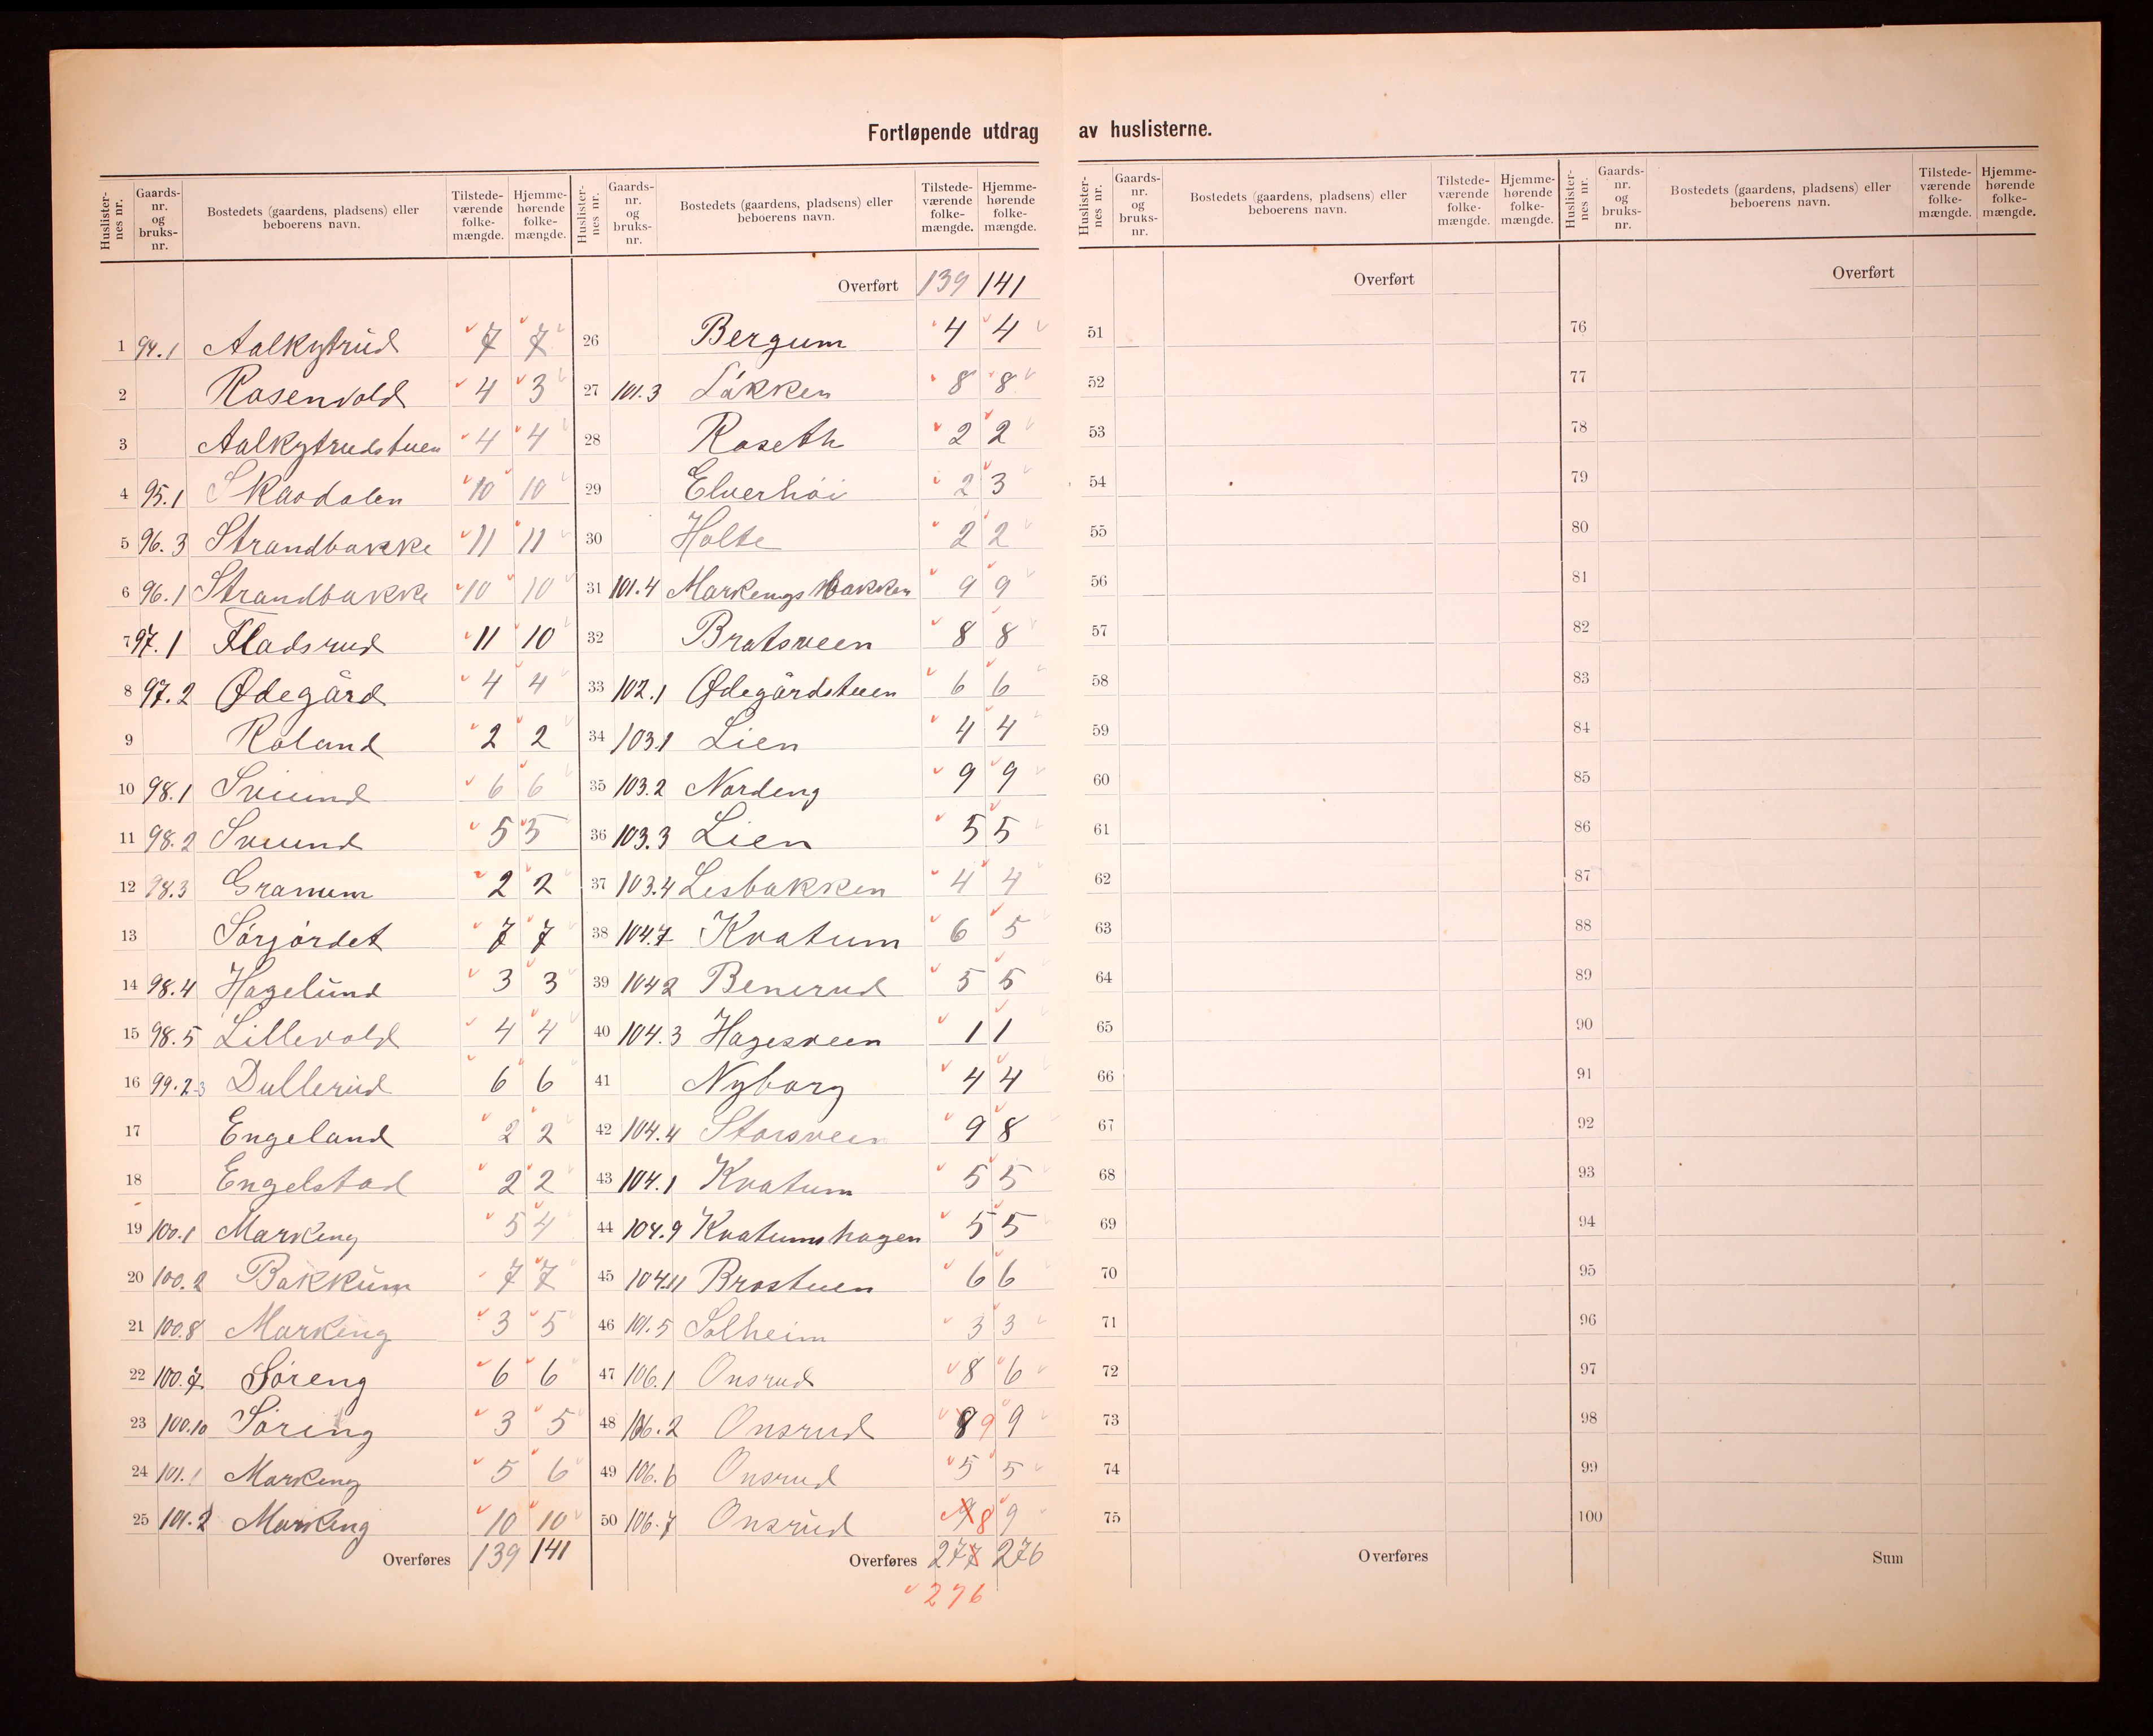 Fortløpende utdrag av huslisterne.
Huslister-nes nr. Gaards-nr. og bruks-nr. Bostedets (gaardens, pladsens) eller beboerens navn. Tilstede-værende folke-mængde. Hjemme-hørende folke-mængde.
1 94.1 Aalkytrud 7 7
2 Rosenvold 4 3
3 Aalkytrudstuen 4 4
4 95.1 Skaodalen 10 10
5 96.3 Strandbakke 11 11
6 96.1 Strandbakke 10 10
7 97.1 Fladsrud 11 10
8 97.2 Ødegård 4 4
9 Roland 2 2
10 98.1 Sviund 6 6
11 98.2 Sviund 5 5
12 98.3 Granum 2 2
13 Sörjordet 7 7
14 98.4 Hagelund 3 3
15 98.5 Lillevold 4 4
16 99.2-3 Dullerud 6 6
17 Engeland 2 2
18 Engelstad 2 2
19 100.1 Markeng 5 4
20 100.2 Bakkum 7 7
21 100.8 Markeng 3 5
22 100.7 Söreng 6 6
23 100.10 Söring 3 5
24 101.1 Markeng 5 6
25 101.2 Markeng 10 10
Overføres 139 141
Huslister-nes nr. Gaards-nr. og bruks-nr. Bostedets (gaardens, pladsens) eller beboerens navn. Tilstede-værende folke-mængde. Hjemme-hørende folke-mængde.
Overført 139 141
26 Bergum 4 4
27 101.3 Løkken 8 8
28 Roseth 2 2
29 Elverhöi 2 3
30 Holte 2 2
31 101.4 Markengsbakken 9 9
32 Bratsveen 8 8
33 102.1 Ødegårdstuen 6 6
34 103.1 Lien 4 4
35 103.2 Nordeng 9 9
36 103.3 Lien 5 5
37 103.4 Lesbakken 4 4
38 104.7 Kvatum 6 5
39 104 2 Benerud 5 5
40 104.3 Hagesveen 1 1
41 Nyborg 4 4
42 104.4 Storsveen 9 8
43 104.1 Kvatum 5 5
44 104.9 Kvatumshagen 5 5
45 104.11 Brostuen 6 6
46 101.5 Solheim 3 3
47 106.1 Onsrud 8 6
48 106.2 Onsrud 8 9 9
49 106.6 Onsrud 5 5
50 106.7 Onsrud 9 8 9
Overføres 277 276
276
Huslister-nes nr. Gaards-nr. og bruks-nr. Bostedets (gaardens, pladsens) eller beboerens navn. Tilstede-værende folke-mængde. Hjemme-hørende folke-mængde.
Overført
51
52
53
54
55
56
57
58
59
60
61
62
63
64
65
66
67
68
69
70
71
72
73
74
75
Overføres
Huslister-nes nr. Gaards-nr. og bruks-nr. Bostedets (gaardens, pladsens) eller beboerens navn. Tilstede-værende folke-mængde. Hjemme-hørende folke-mængde.
Overført
76
77
78
79
80
81
82
83
84
85
86
87
88
89
90
91
92
93
94
95
96
97
98
99
100
Sum